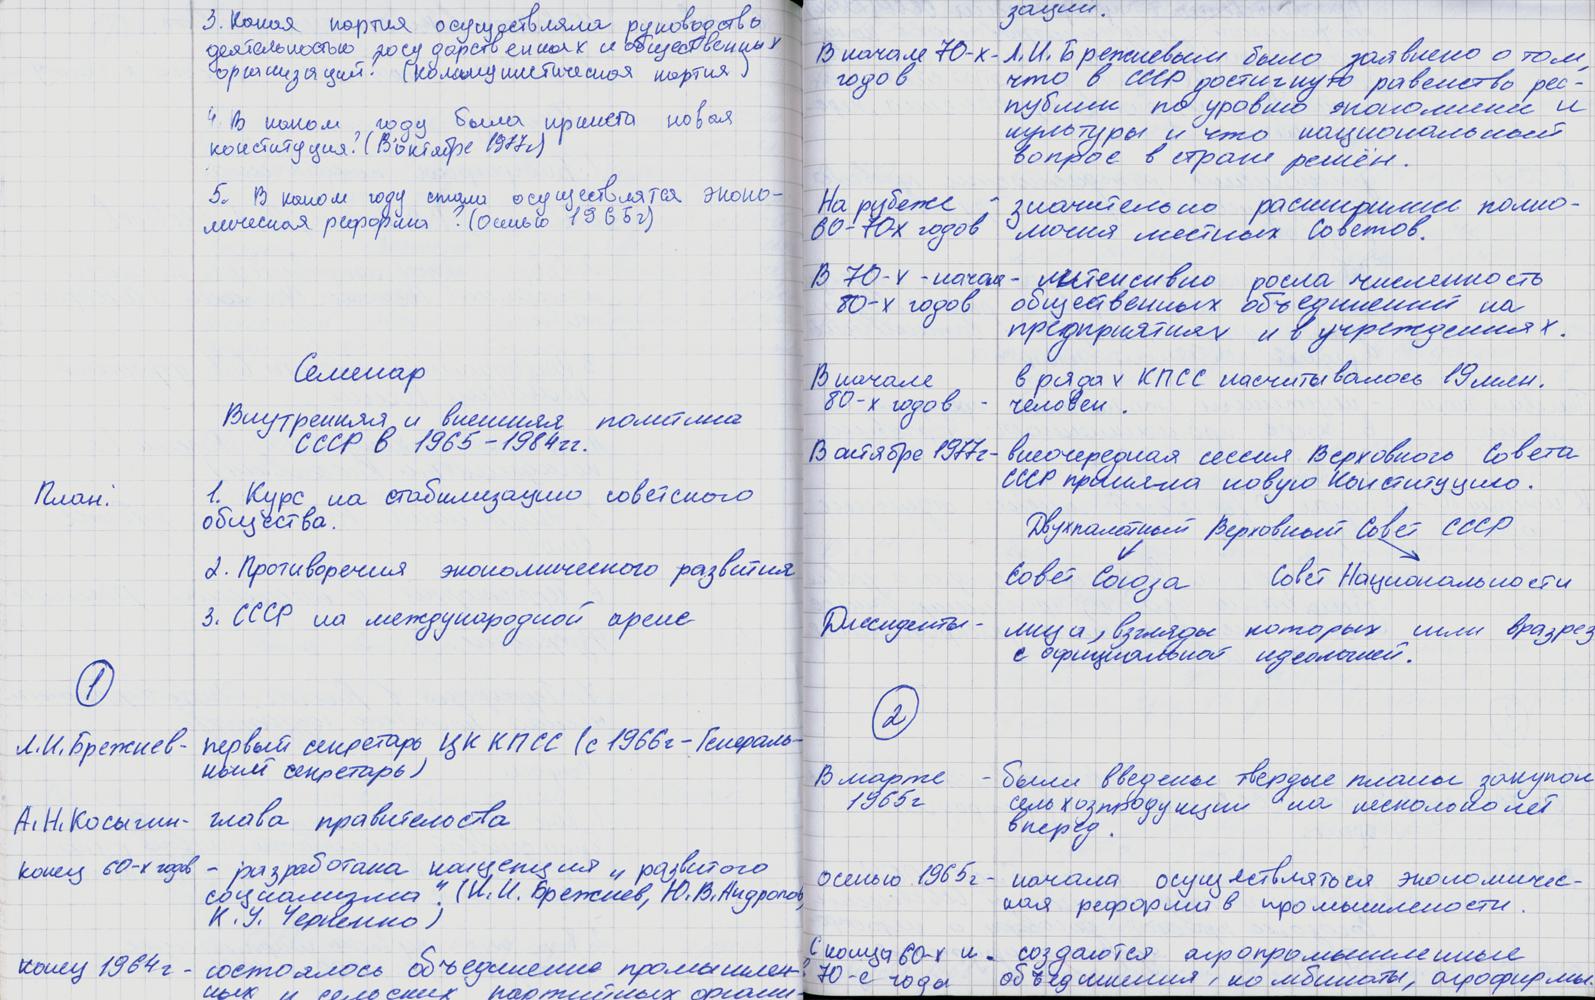 3. Какая партия осуществляла руководство
деятельностью государственных и общественных
организаций? (Коммунистическая партия)
4. В каком году была принята новая
конституция? (В октябре 1977г)
5. В каком году стала осуществлятся эконо-
мическая реформа? (Осенью 1965г)
Семенар
Внутренняя и внешняя политика
СССР в 1965-1984гг.
План: 1. Курс на стабилизацию советского
общества.
2. Противоречия экономического развития
3. СССР на международной арене
1
Л.И.Брежнев- первый секретарь ЦК КПСС (с 1966г- Генераль-
ный секретарь)
А.Н.Косыгин- глава правительства
конец 60-х годов - разработана концепция „развитого
социализма". (Л.И.Брежнев, Ю.В.Андропов,
К.У.Черненко)
конец 1964г- состоялось объединение промышлен-
ных и сельских партийных органи-
зации.
В начале 70-х- Л.И.Брежневым было заявлено о том,
годов что в СССР достигнуто равенство рес-
публик по уровню экономики и
культуры и что национальный
вопрос в стране решён.
На рубеже - значительно расширились полно-
60-70х годов мочия местных Советов.
В 70-х -начале- интенсивно росла численность
80-х годов общественных объединений на
предприятиях и в учреждениях.
В начале в рядах КПСС насчитывалось 19 млн.
80-х годов - человек.
В октябре 1977г- внеочередная сессия Верховного Совета
СССР приняла новую Конституцию.
Двухпалатный Верховный Совет СССР
Совет Союза Совет Национальности
Диссиденты- лица, взгляды которых шли вразрез
с официальной идеологией.
2
В марте - были введены твердые планы закупок
1965г сельхозпродукции на несколько лет
вперед.
осенью 1965г- начала осуществляться экономичес-
кая реформа в промышлености.
С конца 60-х и - создаются агропромышленные
70-е годы объединения, комбинаты, агрофирмы